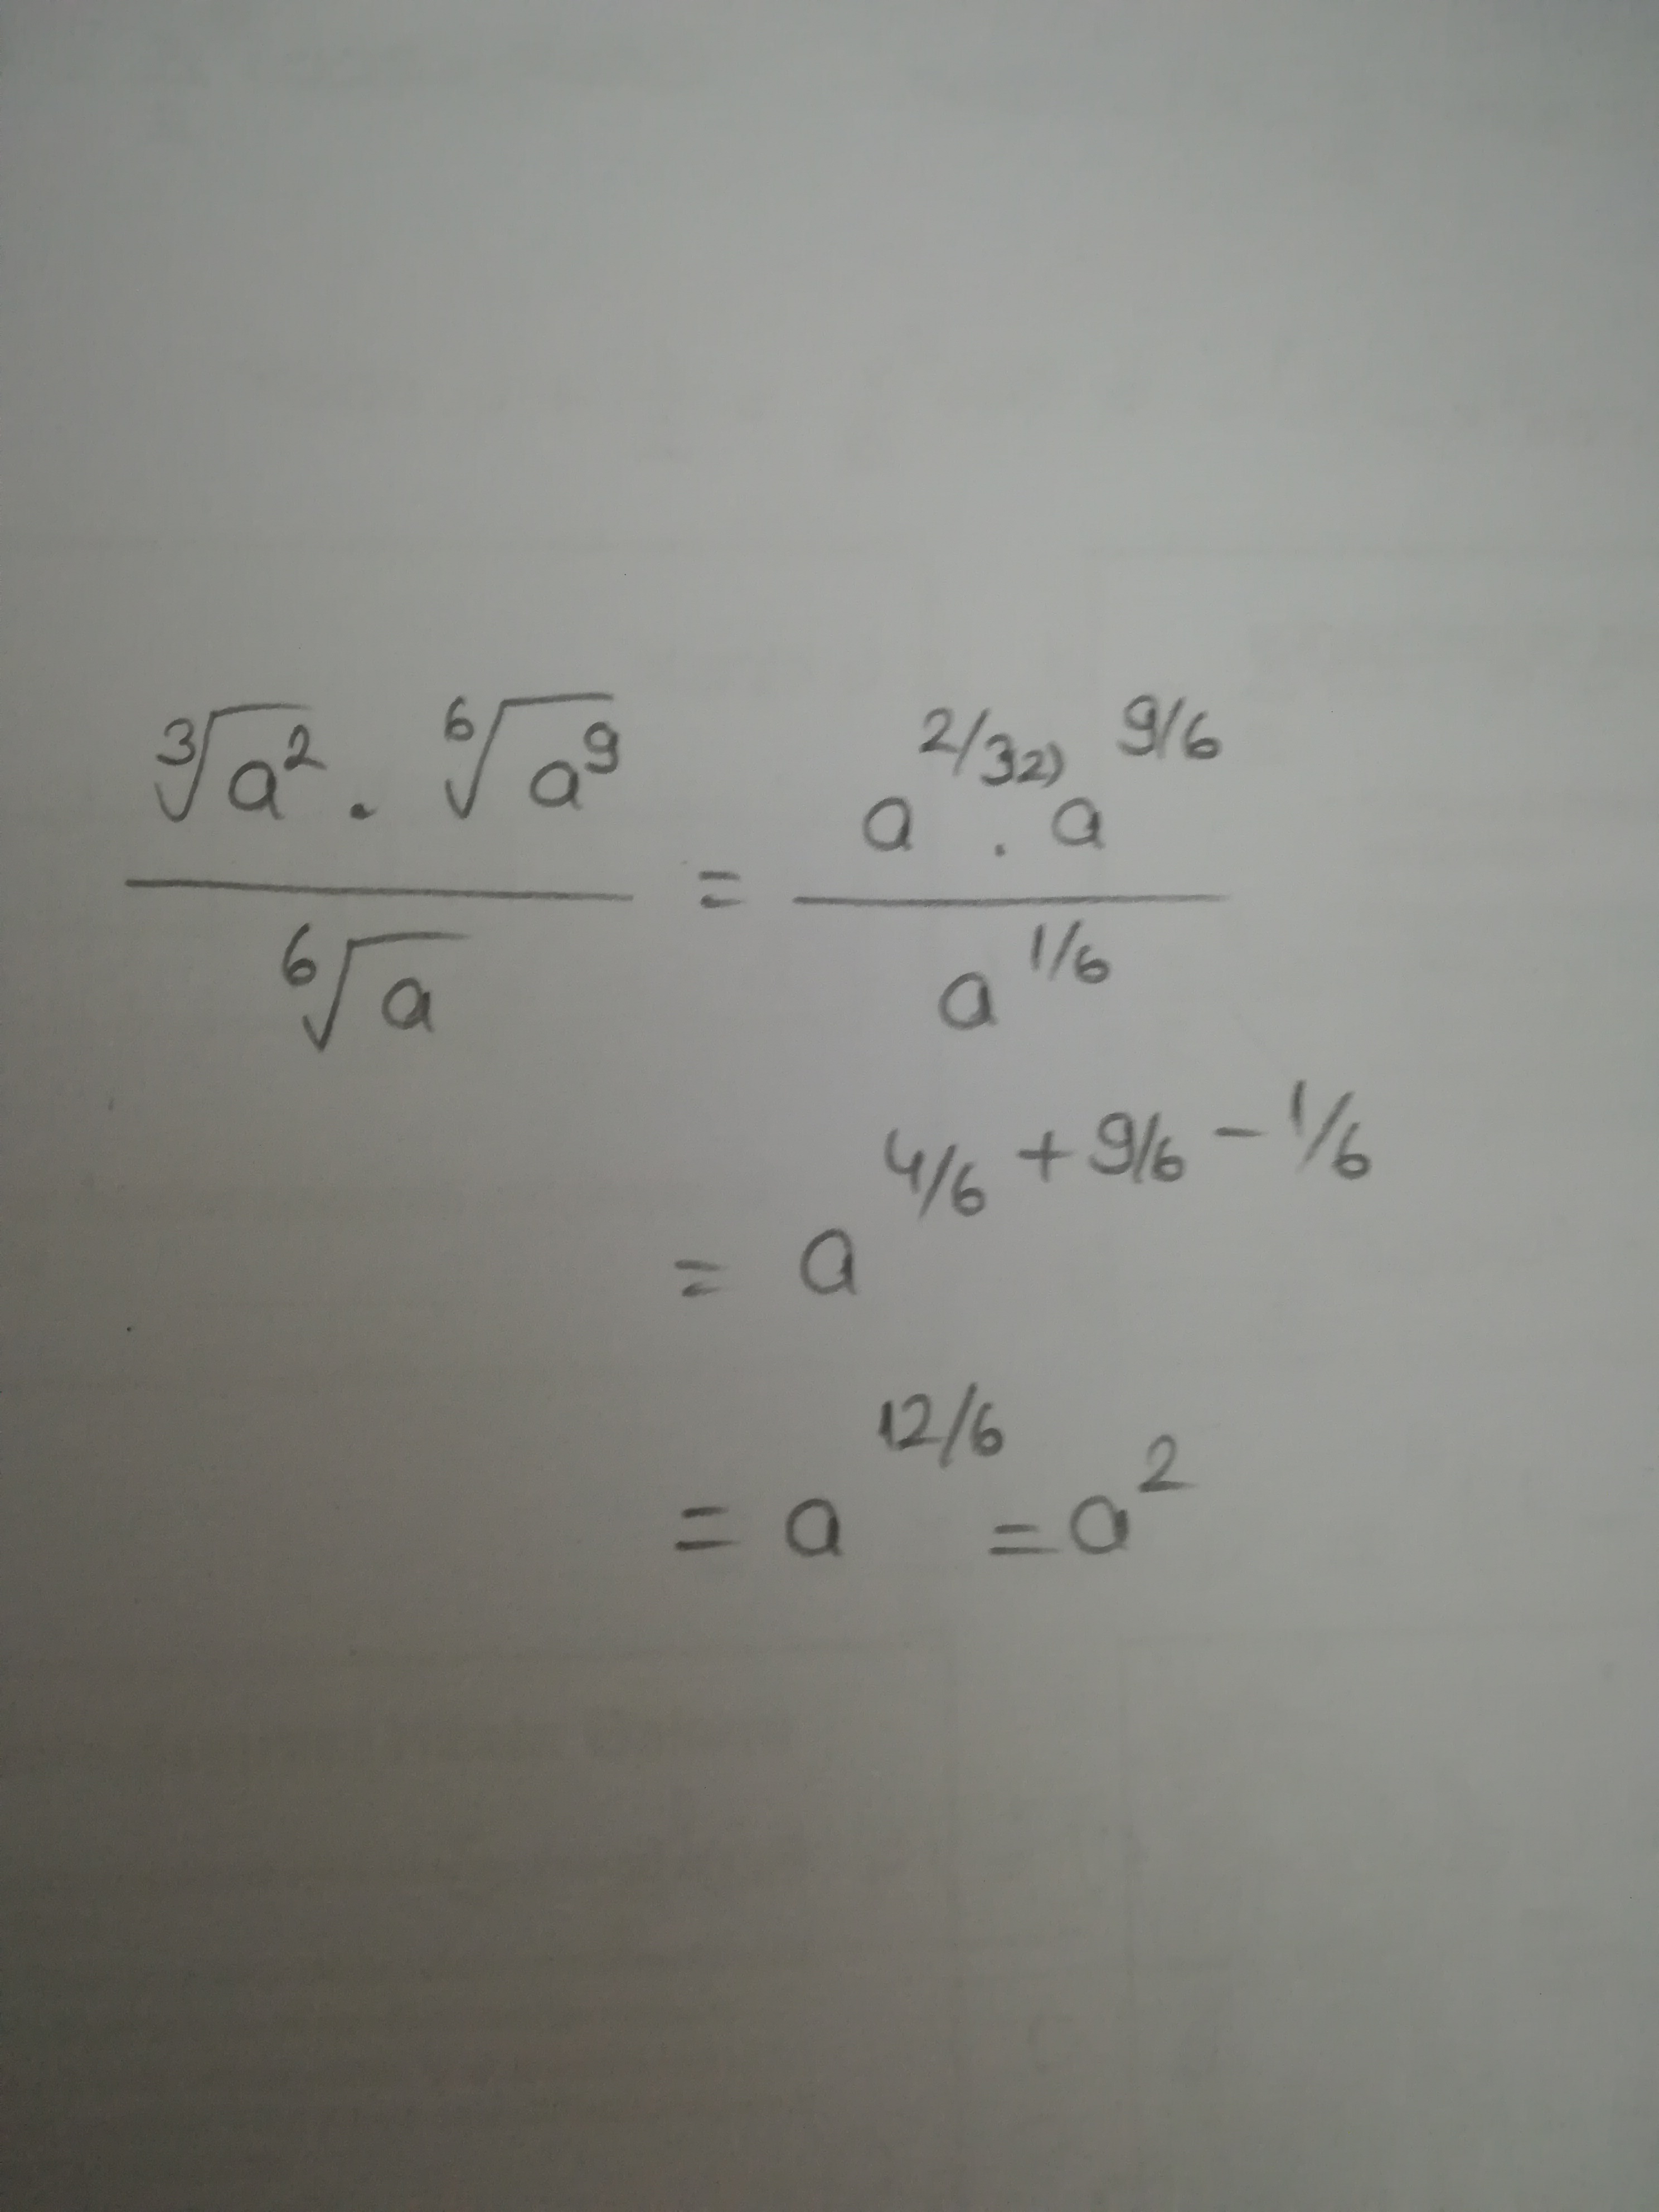 ∛a² . ⁶√a⁹ / ⁶√a = a^2/3 2) . a^9/6 / a^1/6
= a^4/6 + 9/6 - 1/6
= a^12/6 = a²